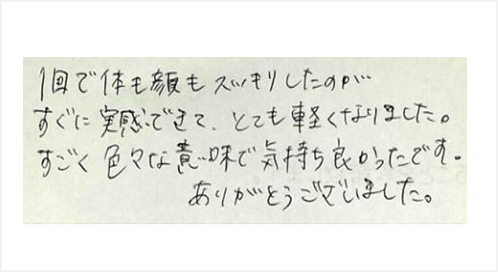 1回で体も顔もスッキリしたのが…
すぐに実感できて、とても軽くなりました。
すごく色々な意味で気持ち良かったです。
ありがとうございました。